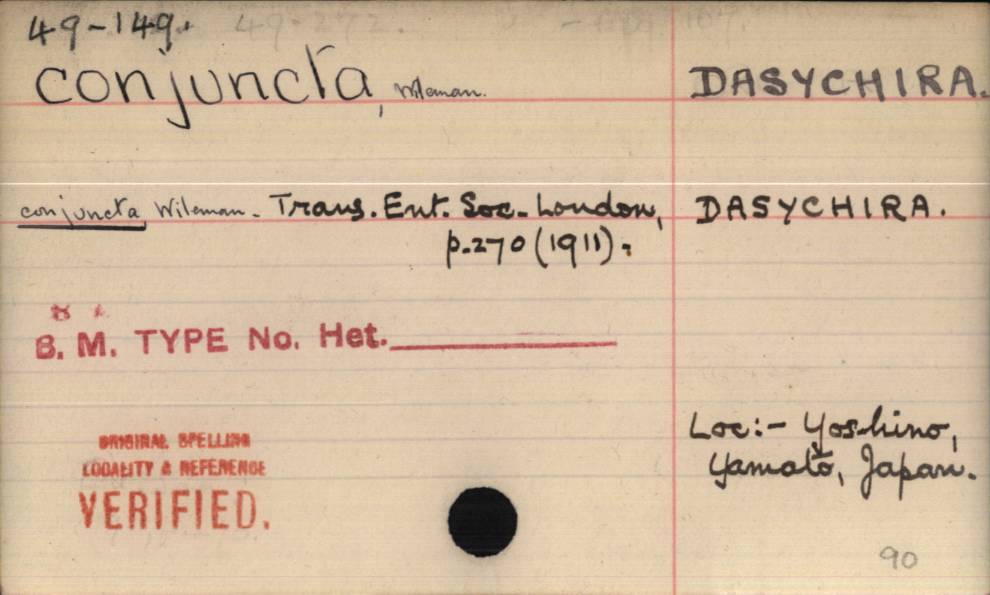 49-149. 49-272.
conjuncta, Wileman. DASYCHIRA.
conjuncta, Wileman. Trans. Ent. Soc. London, DASYCHIRA.
p.270 (1911).
B. M. TYPE No. Het.
ORIGINAL SPELLING
LOCALITY & REFERENCE
VERIFIED.
Loc:- Yoshino,
Yamato, Japan.
90